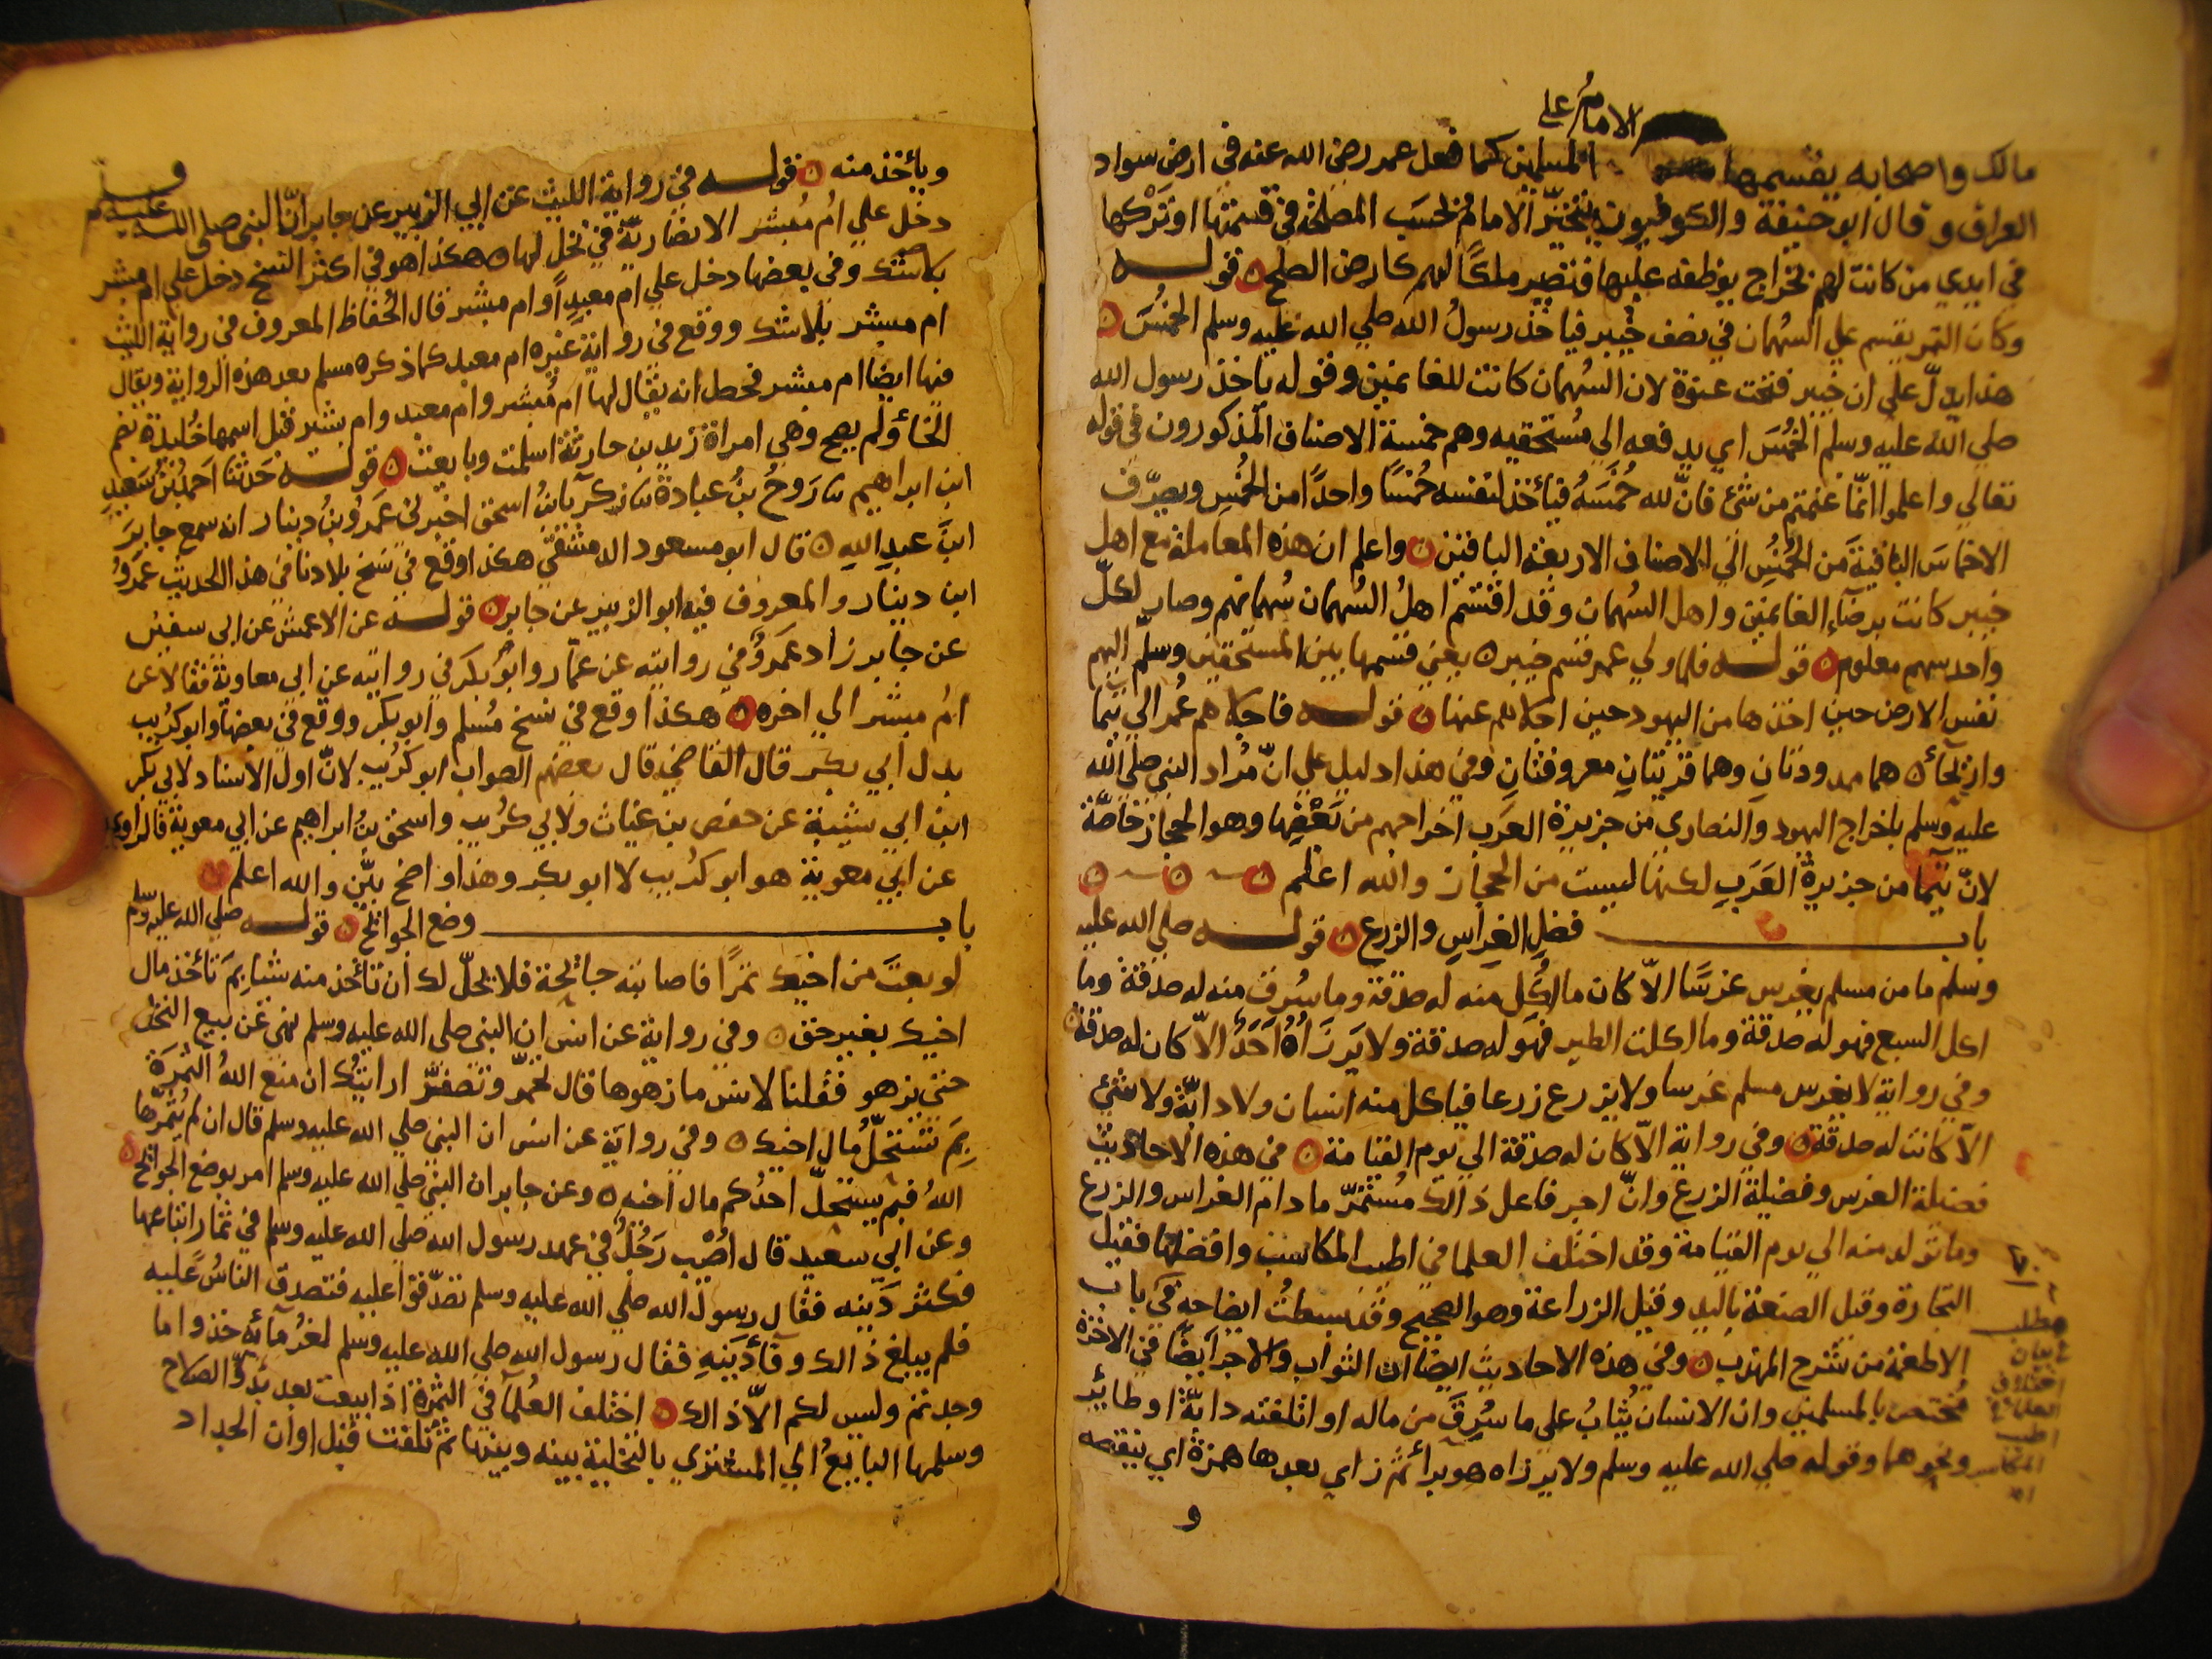 الامام على
مالك واصحابه يقسمها المسلمين كما فعل عمر رضى الله عنه فى ارض سواد
العراق وقال ابو حنيفة والكوفيون يتخيّر الامامُ بحسَب المصلحة في قسمتها او تَرْكها
في ايدي من كانت لهم بخراج يوظفه عليها وتصير ملكًا لهم كارض الصلح ۝ قوله
وكان الثمر يقسم علي السُهمان في نصف خيبر فياخذ رسولُ الله صلي الله عليه وسلم الخُمُسَ ۝
هذا يدلّ علي ان خيبر فتحت عنوة لان السُهمان كانت للغانمين وقوله ياخذ رسول الله
صلي الله عليه وسلم الخُمُسَ اي يدفعه الي مُستحقيه وهم خمسة الاصناف المذكورون في قوله
تعالي واعلموا انّما غنمتم من شئ فانّ لله خُمُسَهُ فيأخذ لنفسه خُمْسًا واحدًا من الخُمُسِ ويصرّف
الاخماسَ الباقيةَ من الخُمُسِ الي الاصناف الاربعة الباقين ۝ واعلم ان هذه المعاملة مع اهل
خيبر كانت برضآءِ الغانمين واهل السُهمان وقد اقتسم اهلُ السُهمان سُهمانهم وصار لكلّ
واحد سهم معلوم ۝ قوله فلما ولي عمر قسم خيبر ۝ يعني قسمها بين المستحقين وسلّم اليهم
نفس الارض حين اخذها من اليهود حين اجلاهم عنها ۝ قوله فاجلاهم عُمر الي تيما
واريحآء ۝ هما ممدودتان وهما قريتانِ معروفتانِ وفي هذا دليل علي انّ مُراد النبي صلي الله
عليه وسلم باخراج اليهود والنصاري من جزيرة العرب اخراجهم من بَعْضِها وهو الحجاز خاصَّة
لانّ تيما من جزيرة العَرَبِ لكنها ليست من الحجاز والله اعلم ۝ ۝ ۝
باب فضلِ الغِراسِ والزرع ۝ قوله صلي الله عليه
وسلم ما من مسلم يغرس غرسًا الاّ كان ما اُكِلَ منه له صدقة وما سُرق منه له صدقة وما
اكل السبع فهو له صدقة وما اكلت الطير فهو له صدقة ولا يَرزَاُهُ اَحَدٌ الاّ كان له صدقة ۝
وفي رواية لا يغرس مسلم غرسا ولا يزرع زرعا فياكل منه انسان ولا دابّة ولا شئ
الاّ كانت له صدقة ۝ وفي رواية الاّ كان له صدقة الي يوم القيامة ۝ في هذه الاحاديث
فضيلة الغرس وفضيلة الزرع وانّ اجر فاعل ذالك مُستمرّ ما دام الغراس والزرع
وما تولد منه الي يوم القيامة وقد اختلف العلما في اطيب المكاسب وافضلها فقيل
التجارة وقيل الصنعة باليد وقيل الزراعة وهو الصحيح وقد بسطتُ ايضاحه في باب
الاطعمة من شرح المهذب ۝ وفي هذه الاحاديث ايضا ان الثواب والاجر ايضًا في الاخرة
مُختص بالمسلمين وان الانسان يُثابُ علي ما سُرِقَ من ماله او اتلفته دابّة او طائر
ونحوهما وقوله صلي الله عليه وسلم ولا يرزاه هو برآء ثم زاي بعدها همزة اي ينقصه
و
مطلب
في بيان
اختلاف
العلما في
اطيب
المكاسب
ويأخذ منه ۝ قوله في رواية الليث عن ابي الزبير عن جابر انّ النبي صلي الله عليه وسلم
دخل علي امُ مُبشر الانصاريّة في نخل لها ۝ هكذا هو في اكثر النسخ دخل علي ام مبشر
بلا شك وفي بعضها دخل علي ام معبدٍ او ام مبشر قال الحُفاظ المعروف في رواية الليث
ام مبشر بلا شك ووقع في رواية غيره ام معبد كما ذكره مسلم بعد هذه الرواية ويقال
فيها ايضا ام مبشر فحصل انه يقال لها ام مُبشر وام معبد وام بشير قيل اسمها خُليدة بضم
الخآء ولم يصح وهي امراة زيد بن حارثة اسلمت وبايعت ۝ قوله حَدثنا احمدُ بنُ سَعيدِ
ابن ابراهيم ثنا رَوحُ بنُ عبادة ثنا زكريآ بنُ اسحق اخبرني عَمرُو بنُ دينار انه سمع جابرَ
ابنَ عبدِ اللهِ ۝ قال ابو مسعود الدمشقي هكذا وقع في نسخ بلادنا في هذا الحديث عَمرُو
ابن دينار والمعروف فيه ابو الزبير عن جابر ۝ قوله عن الاعمش عن ابي سفين
عن جابر زاد عَمرٌو في روايته عن عمّار وابوُ بكر في روايته عن ابي معاوية فقالا عن
امُ مبشر الي اخره ۝ هكذا وقع في نسخ مُسلم وابو بكر ووقع في بعضها وابو كرُيب
بدل ابي بكر قال القاضي قال بعضهم الصواب ابو كرُيب لانّ اول الاسناد لابي بكر
ابن ابي شيبة عن حفص بن غياث ولابي كرُيب واسحق بنُ ابراهيم عن ابي معوية فالراوي
عن ابي معوية هو ابو كرُيب لا ابو بكر وهذا واضح بيّن والله اعلم ۝
باب وضع الجوائح ۝ قوله صلي الله عليه وسلم
لو بعتَ من اخيك ثمرًا فاصابته جائحة فلا يحلّ لك ان تأخذ منه شيئا بِمَ تأخذ مال
اخيك بغير حق ۝ وفي رواية عن انس ان النبي صلي الله عليه وسلم نهي عن بيع النخل
حتي يزهو فقلنا لانس ما زهوها قال تحمرّ وتصفرُّ ارايتك ان منع اللهُ الثمرَةَ
بِمَ تستحلّ مال اخيك ۝ وفي رواية عن انس ان النبي صلي الله عليه وسلم قال ان لم يُثمرها
اللهُ فبم يستحلّ احدُكم مال اخيه ۝ وعن جابر ان النبي صلي الله عليه وسلم امر بوضع الجوائح ۝
وعن ابي سعيد قال اُصُيب رَجُلٌ في عهد رسول الله صلي الله عليه وسلم في ثمار ابتاعها
فكثر دَينه فقال رسول الله صلي الله عليه وسلم تصدّقوا عليه فتصدق الناسُ عَليه
فلم يبلغ ذالك وفآء دَينهِ فقال رسول الله صلي الله عليه وسلم لغرُمآئه خذوا ما
وجدتم وليس لكم الاّ ذالك ۝ اختلف العُلمآء في الثمرة اذا بيعت بعد بُدوّ الصلاح
وسلمها البايعُ الي المشتري بالتخلية بينه وبينها ثم تلفت قبل اوان الجداد